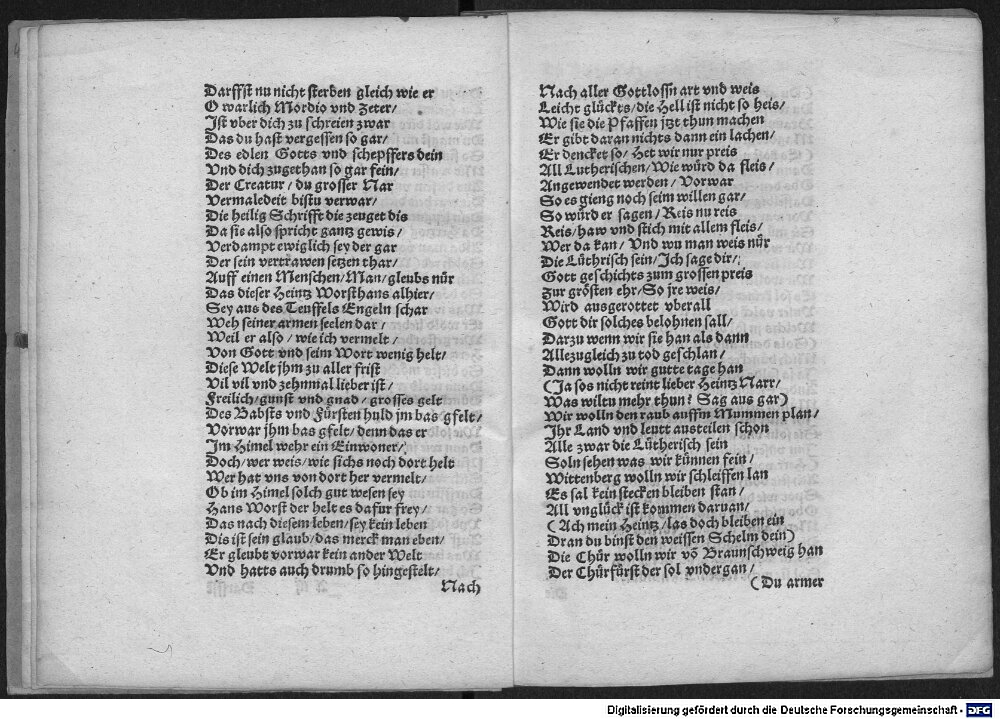 Darffst nu nicht sterben gleich wie er
O warlich Mordio vnd Zeter/
Ist vber dich zu schreien zwar
Das du hast vergessen so gar/
Des edlen Gotts vnd schepffers dein
Vnd dich zugethan so gar fein/
Der Creatur/ du grosser Nar
Vermaledeit bistu verwar/
Die heilig Schrifft die zeuget dis
Da sie also spricht gantz gewis/
Verdampt ewiglich sey der gar
Der sein vertrawen setzen thar/
Auff einen Menschen/Man/gleubs nür
Das dieser Heintz Worsthans alhier/
Sey aus des Teuffels Engeln schar
Weh seiner armen seelen dar/
Weil er also/ wie ich vermelt/
Von Gott vnd seim Wort wenig helt/
Diese Welt jhm zu aller frist
Vil vil vnd zehnmal lieber ist/
Freilich/gunst vnd gnad/ grosses gelt
Des Babsts vnd Fürsten huld jm bas gfelt/
Vorwar jhm bas gfelt/ denn das er
Im Himel wehr ein Einwoner/
Doch/wer weis/wie sichs noch dort helt
Wer hat vns von dort her vermelt/
Ob im Himel solch gut wesen sey
Hans Worst der helt es dafur frey/
Das nach diesem leben/sey kein leben
Dis ist sein glaub/das merck man eben/
Er gleubt vorwar kein ander Welt
Vnd hatts auch drumb so hingestelt/
Nach
Nach aller Gottlossn art vnd weis
Leicht glückts/die Hell ist nicht so heis/
Wie sie die Pfaffen jtzt thun machen
Er gibt daran nichts dann ein lachen/
Er dencket so/ Het wir nur preis
All Lutherischen/Wie würd da fleis/
Angewendet werden/ Vorwar
So es gieng noch seim willen gar/
So würd er sagen/Reis nu reis
Reis/haw vnd stich mit allem fleis/
Wer da kan/ Vnd wu man weis nür
Die Lüthrisch sein/Ich sage dir/
Gott geschichts zum grossen preis
Zur grösten ehr/So jre weis/
Wird ausgerottet vberall
Gott dir solches belohnen sall/
Darzu wenn wir sie han als dann
Allezugleich zu tod geschlan/
Dann wolln wir gutte tage han
(Ja sos nicht reint lieber Heintz Narr/
Was wiltu mehr thun? Sag aus gar)
Wir wolln den raub auffm Mummen plan/
Ihr Land vnd leutt austeilen schon
Alle zwar die Lütherisch sein
Soln sehen was wir künnen fein/
Wittenberg wolln wir schleiffen lan
Es sal kein stecken bleiben stan/
All vnglück ist kommen daruan/
(Ach mein Heintz/las doch bleiben ein
Dran du binst den weissen Schelm dein)
Die Chür wolln wir võ Braunschweig han
Der Chürfürst der sol vndergan/
(Du armer
Digitalisierung gefördert durch die Deutsche Forschungsgemeinschaft - DFG